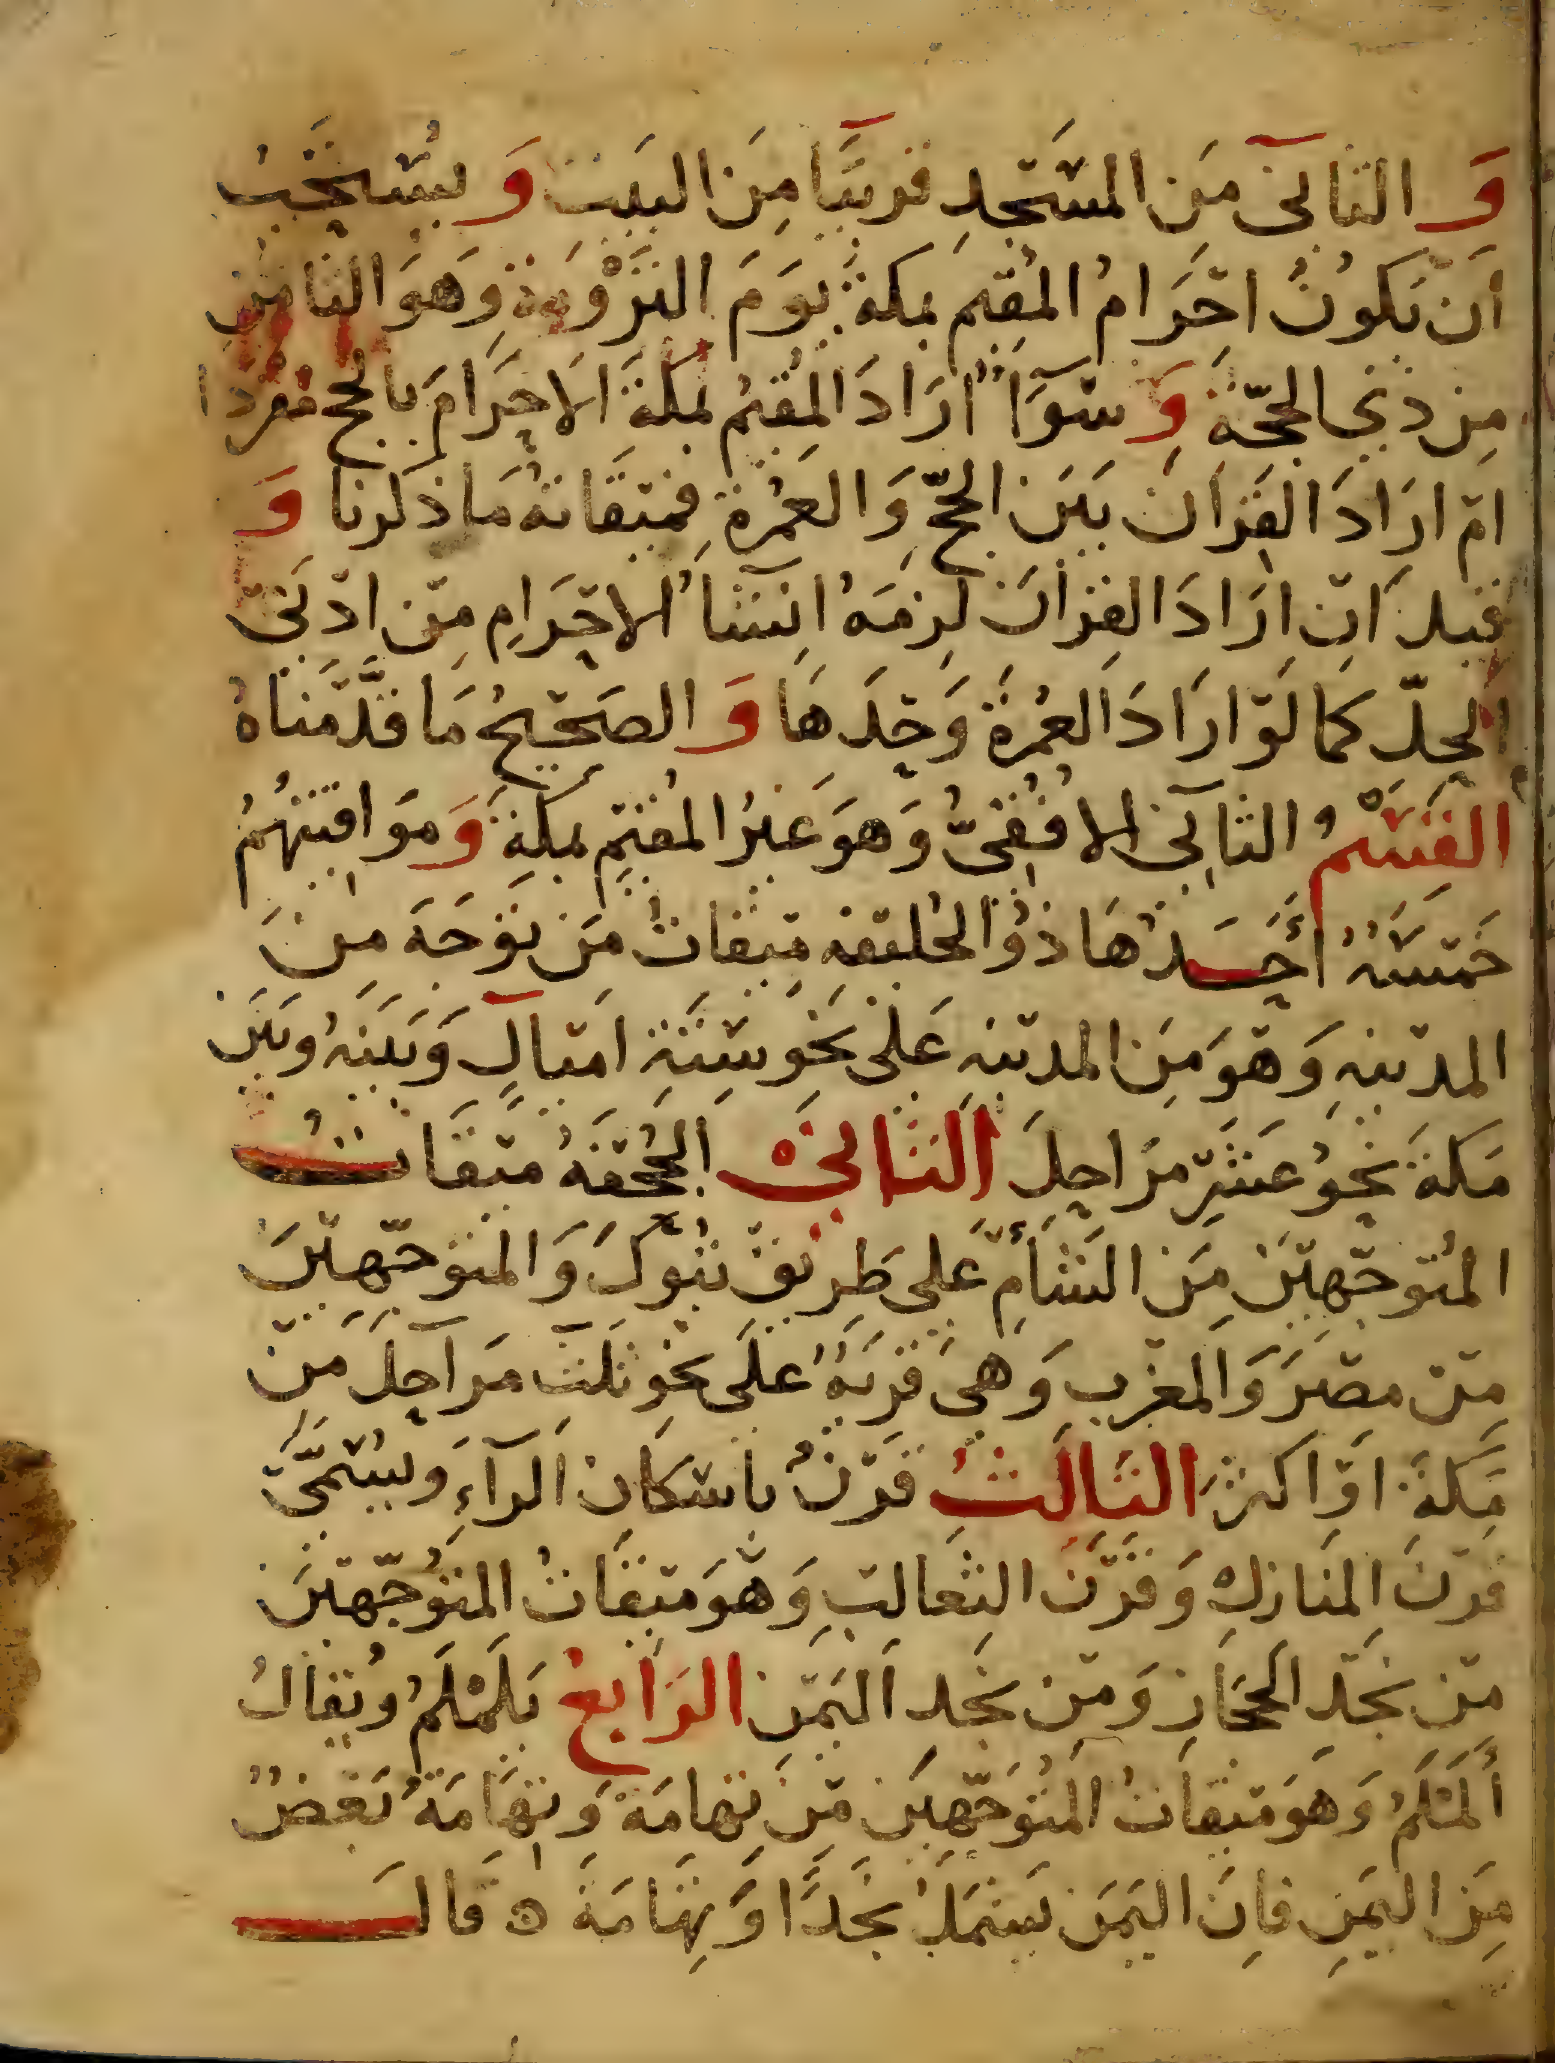 وَ الثاني مَن المسْجدِ قريبًا مِنَ البَيت وَ يسْتحَبُ
اَن يَكونُ احْرَامُ المُقِيم بمكةَ يَومَ التَّرْوِيَةِ وَهوَ الثامنِ
مِن ذي الحجّة وَ سَوَآءٌ ارَادَ المُقيمُ بمكةَ الاحرَامَ بالحج مفردا
امْ ارَادَ القِرَان بَيَن الحجِّ وَ العمْرةِ فميقَاتهُ مَا ذكرنا وَ
قيل اَنْ ارَادَ القِرانَ لزمَهُ انشآءُ الاحْرَامِ مِن ادْنى
الحِلّ كما لَوْ ارَادَ العُمرَةَ وَحْدَهَا وَ الصَحيْحُ مَا قدَّمْناهُ
القِسْمُ الثاني الافُقيُّ وَهوَ غيرُ المُقيْمِ بمكةَ وَ موَاقيتهُمُ
خَمْسَةٌ أحَدُهَا ذوُ الحُليْفه مِيقاتُ مَن توَجَهَ مِنَ
المدْينهِ وَهوَ مِنَ المدْينهِ عَلىٰ نحَو سِتَّةِ امْيَالٍ وَبَيَنهُ وبَيَن
مَكةَ نَحْوُ عَشْرِ مرَاحِلَ الثَانيْ الجُحْفَهُ ميْقَاتُ
المُتوَجّهيْنَ مِن الشَأْمِ عَلى طَرِيْق تبَوُكَ وَ المتوَجّهيْنَ
مِنْ مصْرَ وَ المغْرب وَهيَ قرْيةٌ عَلَى نحْو ثلَثْ مَرَاحِلَ مِنْ
مَكةَ اوْ اكثرَ الثَالثُ قرْنٌ باسْكان الرآءِ وَيسُمىَّ
قرْنَ المَنازلِ وَ قَرْنَ الثعَالبِ وَهوَ ميْقَاتُ المتوَُجّهيْنَ
مِنْ نَجْدِ الحجَازِ وَ مِنْ نَجدِ اليمَنِ الرَابعُ يَلَمْلَمُ وَيُقالُ
أَلمْلَمُ وَهوَ ميقَاتُ المُتوَجّهيَن مِنْ تهامَة وَ تهَامَةُ بَعْضٌ
مِنَ اليَمَنِ فاِنَ اليَمَن يَشمَلُ نَجَدًا وَ تِهَامَةَ ه قالَ